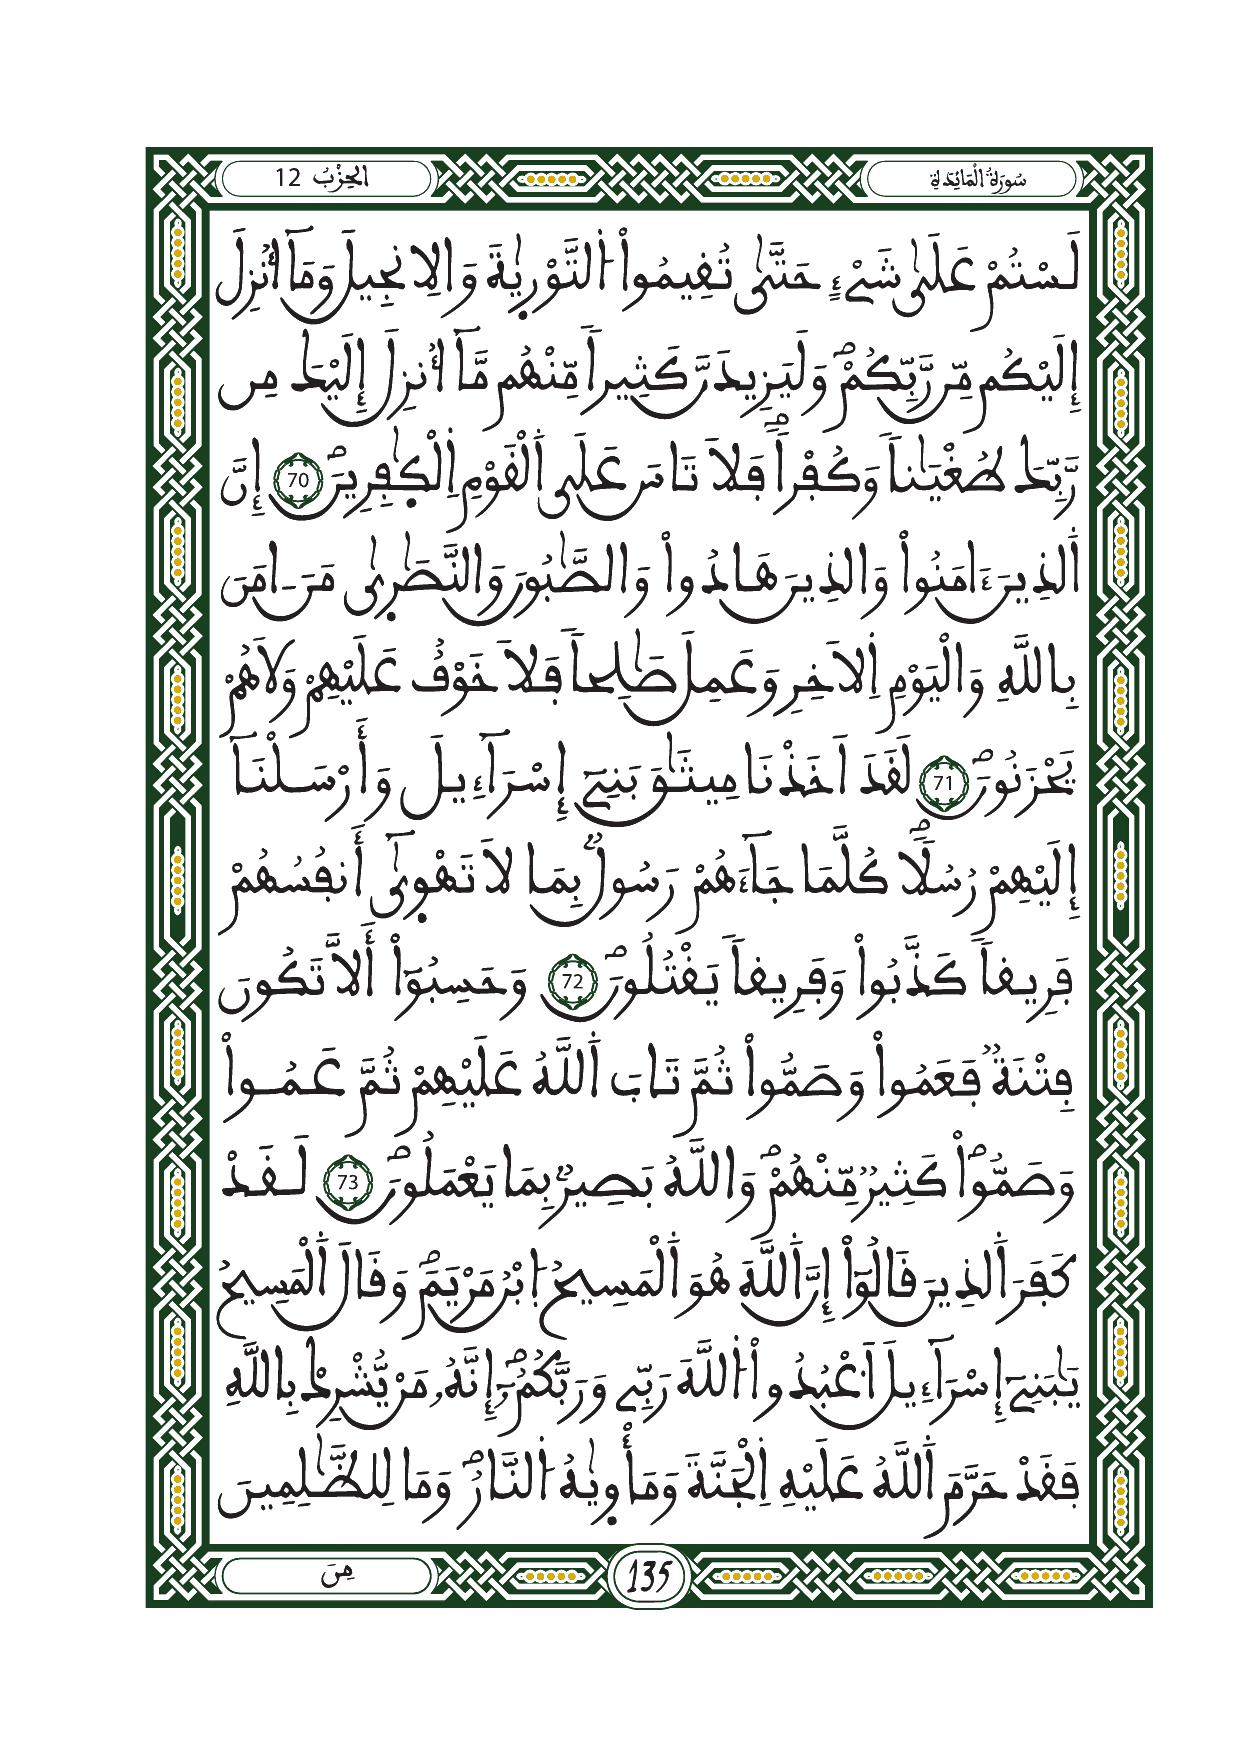 سُورَةُ الْمَائِدَةِ
الحِزْبُ 12
لَسْتُمْ عَلَىٰ شَےْءٍ حَتَّىٰ تُقِيمُواْ اُ۬لتَّوْرِيٰةَ وَالِانجِيلَ وَمَآ أُنزِلَ
إِلَيْكُم مِّن رَّبِّكُمْۖ وَلَيَزِيدَنَّ كَثِيراٗ مِّنْهُم مَّآ أُنزِلَ إِلَيْكَ مِن
رَّبِّكَ طُغْيَٰناٗ وَكُفْراٗۖ فَلَا تَاسَ عَلَى اَ۬لْقَوْمِ اِ۬لْكٰ۪فِرِينَۖ 70 إِنَّ
اَ۬لذِينَ ءَامَنُواْ وَالذِينَ هَادُواْ وَالصَّٰبُونَ وَالنَّصَٰر۪يٰ مَنَ اٰمَنَ
بِاللَّهِ وَالْيَوْمِ اِ۬لَاخِرِ وَعَمِلَ صَٰلِحاٗ فَلَا خَوْفٌ عَلَيْهِمْ وَلَا هُمْ
يَحْزَنُونَۖ 71 لَقَدَ اَخَذْنَا مِيثَٰقَ بَنِےٓ إِسْرَآءِيلَ وَأَرْسَلْنَآ
إِلَيْهِمْ رُسُلاٗۖ كُلَّمَا جَآءَهُمْ رَسُولُۢ بِمَا لَا تَهْو۪ىٰٓ أَنفُسُهُمْ
فَرِيقاٗ كَذَّبُواْ وَفَرِيقاٗ يَقْتُلُونَۖ 72 وَحَسِبُوٓاْ أَلَّا تَكُونَ
فِتْنَةٞ فَعَمُواْ وَصَمُّواْ ثُمَّ تَابَ اَ۬للَّهُ عَلَيْهِمْ ثُمَّ عَمُواْ
وَصَمُّواْۖ كَثِيرٞ مِّنْهُمْۖ وَاللَّهُ بَصِيرُۢ بِمَا يَعْمَلُونَۖ 73 لَقَدْ
كَفَرَ اَ۬لذِينَ قَالُوٓاْ إِنَّ اَ۬للَّهَ هُوَ اَ۬لْمَسِيحُ اُ۪بْنُ مَرْيَمَۖ وَقَالَ اَ۬لْمَسِيحُ
يَٰبَنِےٓ إِسْرَآءِيلَ اَ۟عْبُدُواْ اُ۬للَّهَ رَبِّے وَرَبَّكُمُۥٓۖ إِنَّهُۥ مَنْ يُّشْرِكْ بِاللَّهِ
فَقَدْ حَرَّمَ اَ۬للَّهُ عَلَيْهِ اِ۬لْجَنَّةَ وَمَأْو۪يٰهُ اُ۬لنَّارُۖ وَمَا لِلظَّٰلِمِينَ
مِنَ
135